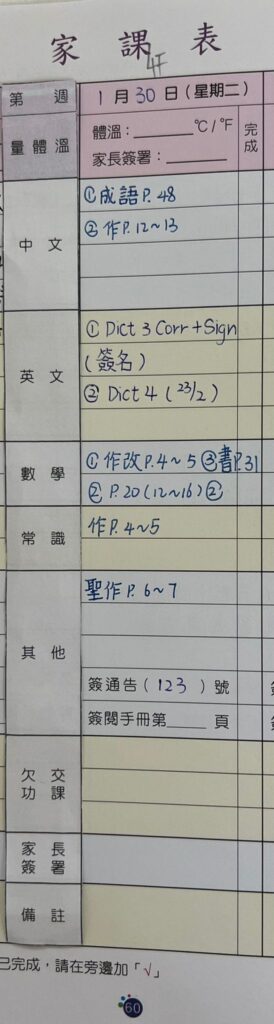 家課表
4F
第 週
1月30日(星期二)
量體溫
體溫：______℃/℉
家長簽署：______
完成
中文
①成語P.48
②作P.12~13
英文
①Dict 3 Corr+Sign
(簽名)
②Dict 4 (23/2)
數學
①作改P.4~5 ③書P.31
②P.20(12~16)②
常識
作P.4~5
其他
聖作P.6~7
簽通告(123)號
簽閱手冊第____頁
欠交功課
家長簽署
備註
已完成，請在旁邊加「√」
60